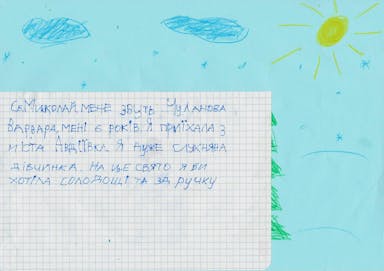 Св Миколай, мене звуть Чуланова
Варвара, мені 6 років. Я приїхала з
міста Авдіївка. Я дуже слухняна
дівчинка. на це свято я би
хотіла солодощі та 3д ручку